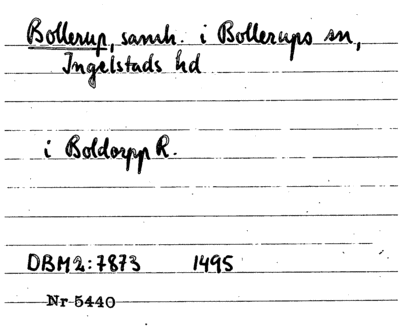 Bollerup, samh. i Bollerups sn,
Ingelstads hd
i Boldorpp R.
DBM2:7873 1495
Nr 5440